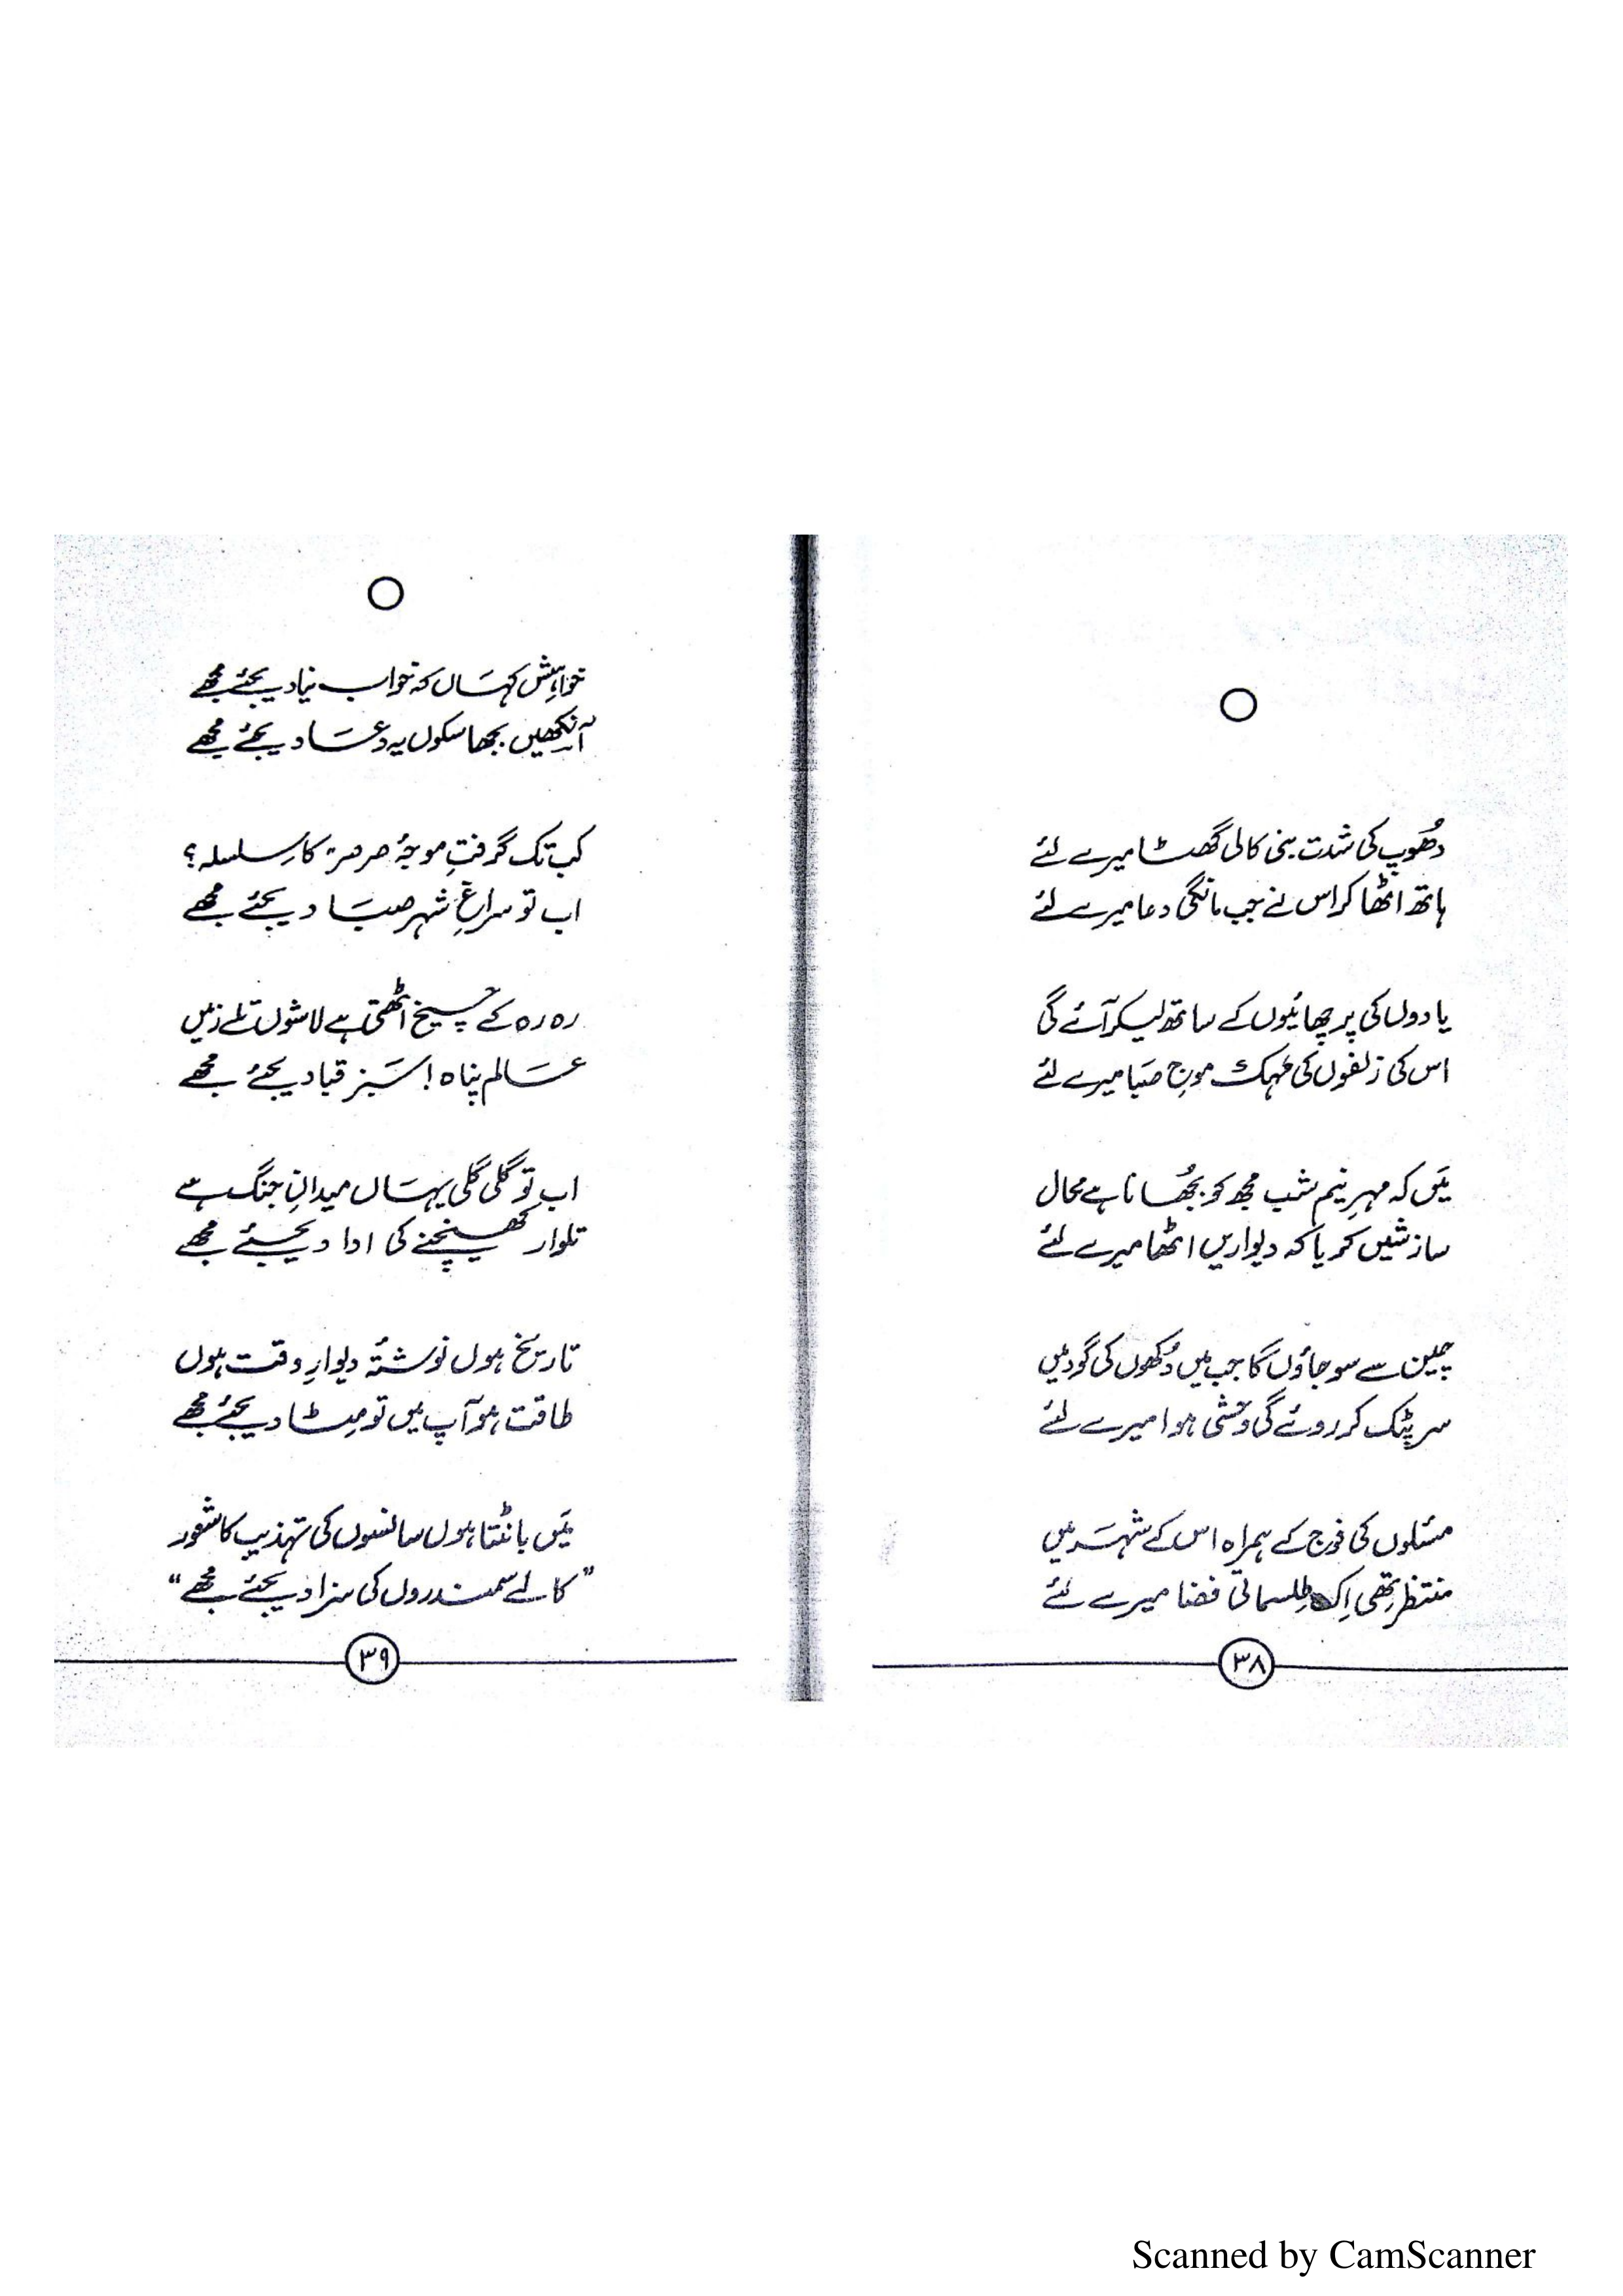 دھُوپ کی شدت بنی کالی گھٹا میرے لئے
ہاتھ اٹھا کر اس نے جب مانگی دعا میرے لئے
یادوں کی پرچھائیوں کے ساتھ لیکر آئے گی
اس کی زلفوں کی مہک موجِ صبا میرے لئے
میَں کہ مہرِ نیم شب مجھ کو بجھُانا ہے محال
سازشیں کر یا کہ دیواریں اٹھا میرے لئے
چین سے سو جاؤں گا جب میں دُکھوں کی گود میں
سر پٹک کر روئے گی وحشی ہوا میرے لئے
مسئلوں کی فوج کے ہمراہ اس کے شہر میں
منتظر تھی اِک طِلسماتی فضا میرے لئے
۳۸
خواہش کہاں کہ خواب نیا دیجئے مجھے
آنکھیں بجھا سکوں یہ دعا دیجئے مجھے
کب تک گرفتِ موجۂ صرصر کا سِلسلہ؟
اب تو سراغِ شہر صبا دیجئے مجھے
رہ رہ کے چیخ اٹھتی ہے لاشوں تلے زمیں
عالم پناہ! سبز قبا دیجئے مجھے
اب تو گلی گلی یہاں میدانِ جنگ ہے
تلوار کھینچنے کی ادا دیجئے مجھے
تاریخ ہوں نوشتۂ دیوارِ وقت ہوں
طاقت ہو آپ میں تو مِٹا دیجئے مجھے
میَں بانٹتا ہوں سانسوں کی تہذیب کا شعور
”کالے سمندروں کی سزا دیجئے مجھے“
۳۹
Scanned by CamScanner